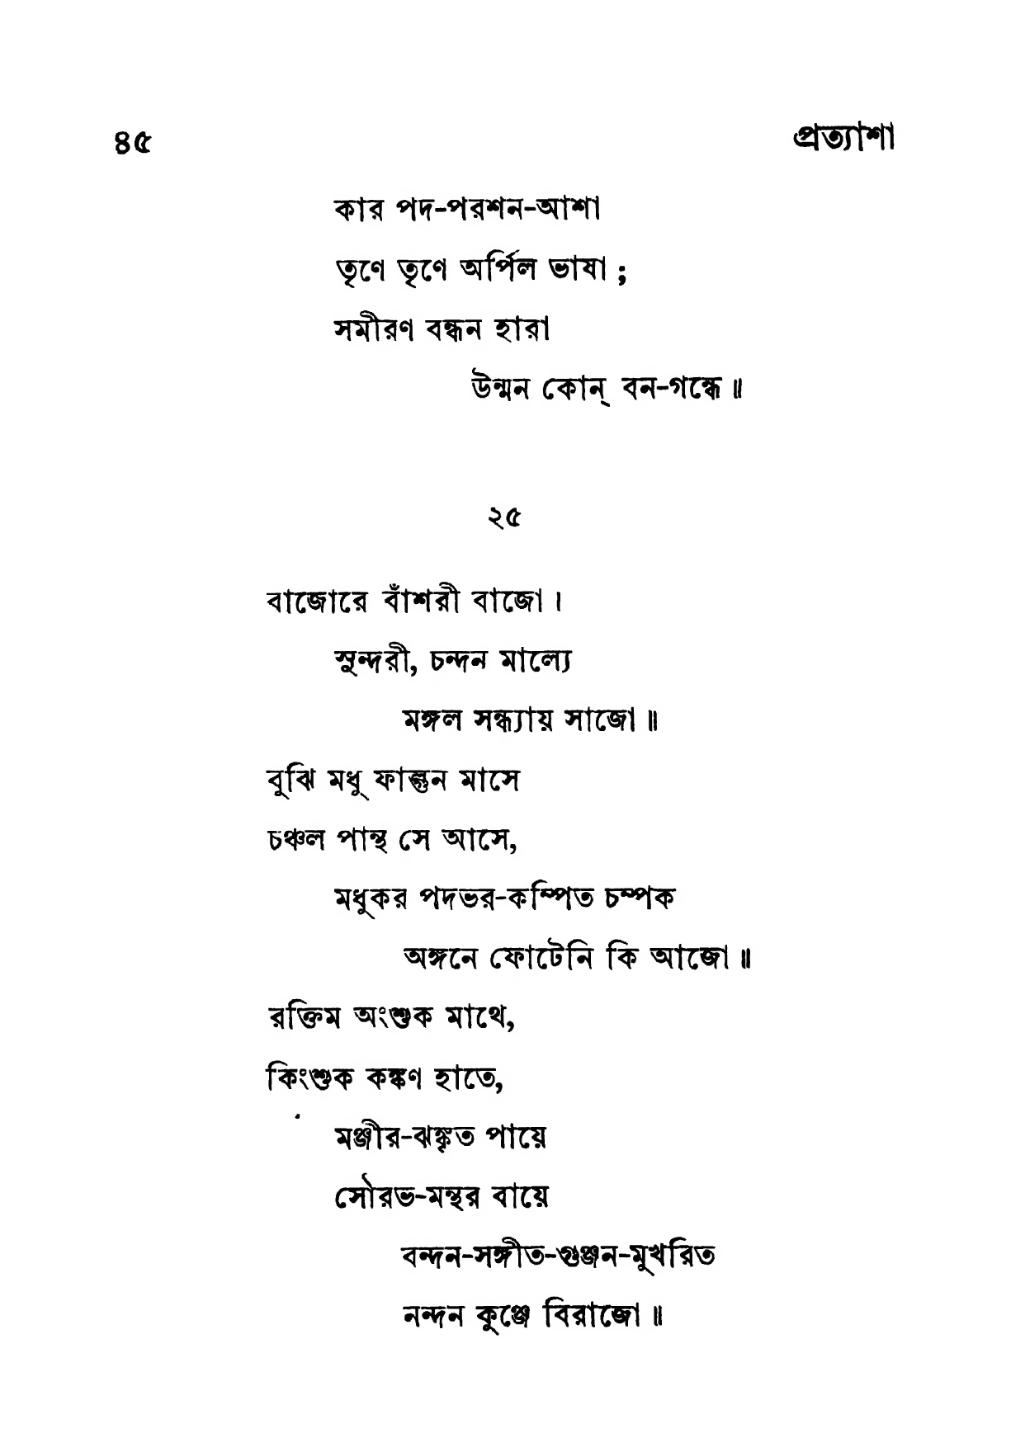 ৪৫ প্রত্যাশা
কার পদ-পরশন-আশা
তৃণে তৃণে অর্পিল ভাষা ;
সমীরণ বন্ধন হারা
উন্মন কোন্ বন-গন্ধে ॥
২৫
বাজোরে বাঁশরী বাজো ।
সুন্দরী, চন্দন মাল্যে
মঙ্গল সন্ধ্যায় সাজো ॥
বুঝি মধু ফাল্গুন মাসে
চঞ্চল পান্থ সে আসে,
মধুকর পদভর-কম্পিত চম্পক
অঙ্গনে ফোটেনি কি আজো ॥
রক্তিম অংশুক মাথে,
কিংশুক কঙ্কণ হাতে,
মঞ্জীর-ঝঙ্কৃত পায়ে
সৌরভ-মন্থর বায়ে
বন্দন-সঙ্গীত-গুঞ্জন-মুখরিত
নন্দন কুঞ্জে বিরাজো ॥